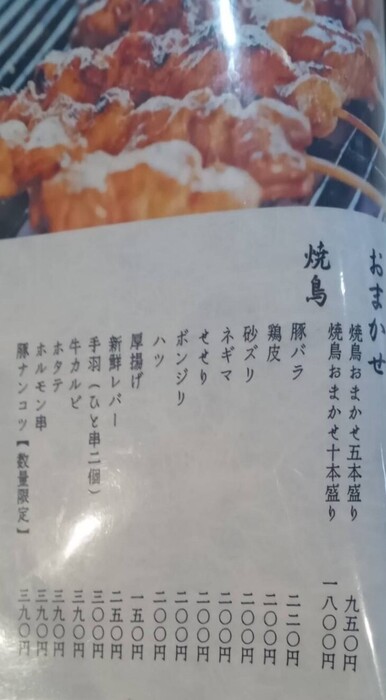 おまかせ
焼鳥おまかせ五本盛り 九五〇円
焼鳥おまかせ十本盛り 一八〇〇円
焼鳥
豚バラ 二二〇円
鶏皮 二〇〇円
砂ズリ 二〇〇円
ネギマ 二〇〇円
せせり 二〇〇円
ボンジリ 二〇〇円
ハツ 二〇〇円
厚揚げ 一五〇円
新鮮レバー 二五〇円
手羽（ひと串二個） 三〇〇円
牛カルビ 三九〇円
ホタテ 三九〇円
ホルモン串 三九〇円
豚ナンコツ【数量限定】 三九〇円